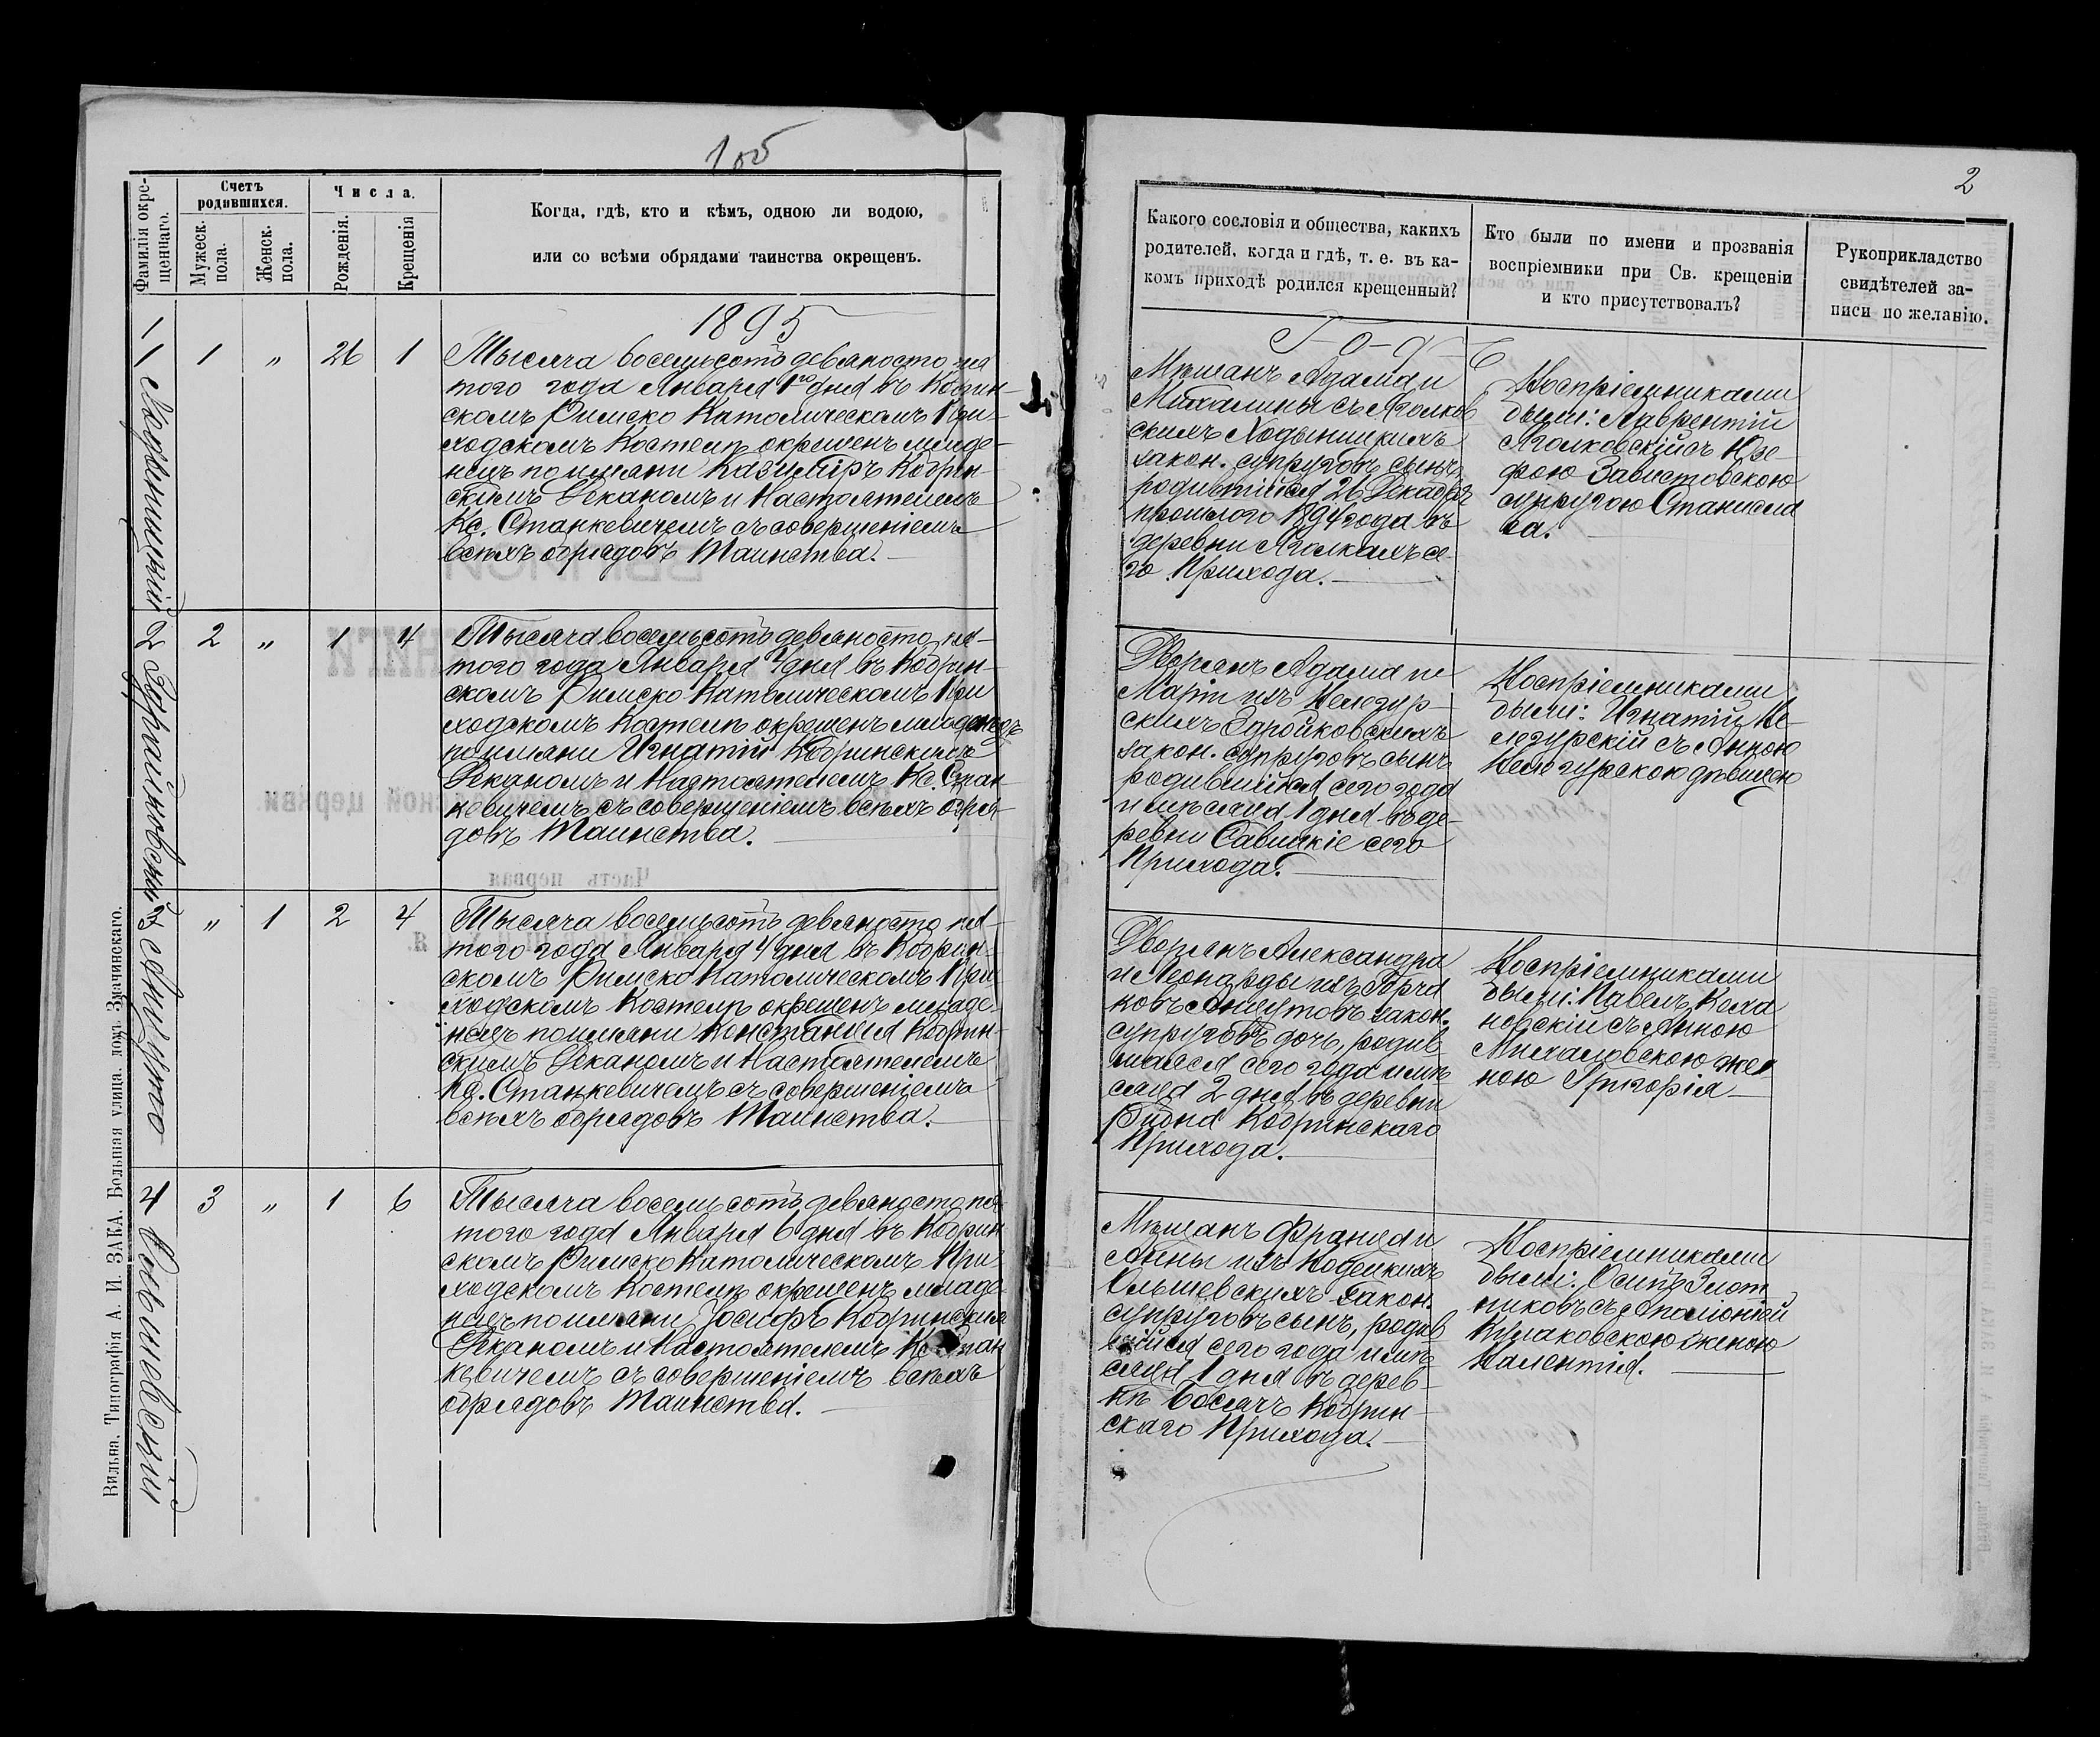 1об
Фамилія окре-
щеннаго.
Счетъ
родившихся.
Мужеск.
пола.
Женск.
пола.
Числа.
Рожденія.
Крещенія
Когда, гдѣ, кто и кѣмъ, одною ли водою,
или со всѣми обрядами таинства окрещенъ.
1895
1 Ходыницкій
1 „ 26 1
Тысяча восемьсотъ девяносто пя
того года Января 1го дня въ Кобрин-
скомъ Римско Католическомъ При-
ходскомъ Костелѣ окрещенъ младе-
нецъ по имяни Казимиръ Кобрин-
скимъ Деканомъ и Настоятелемъ
Кс. Станкевичемъ съ совершеніемъ
всѣхъ обрядовъ Таинства.
2
2 „ 1 4
Тысяча восемьсотъ девяносто пя-
того года Января 4 дня въ Кобрин-
скомъ Римско-Католическомъ При
ходскомъ Костелѣ окрещенъ младенецъ
по имяни Игнатій Кобринскимъ
Деканомъ и Настоятелемъ Кс. Стан
кевичемъ съ совершеніемъ всѣхъ обря-
довъ Таинства.
3
„ 1 2 4
Тысяча восемьсотъ девяносто пя-
того года Января 4 дня въ Кобрин-
скомъ Римско Католическомъ При
ходскомъ Костелѣ окрещенъ младе-
нецъ по имяни Констанція Кобрин-
скимъ Деканомъ и Настоятелемъ
Кс. Станкевичемъ съ совершеніемъ
всѣхъ обрядовъ Таинства.
4 Ольшевскій
3 „ 1 6
Тысяча восемьсотъ девяносто пя-
того года Января 6 дня въ Кобрин
скомъ Римско Католическомъ При
ходскомъ Костелѣ окрещенъ младе-
нецъ по имяни Іосифъ Кобринскимъ
Деканомъ и Настоятелемъ Кс. Стан
кевичемъ съ совершеніемъ всѣхъ
обрядовъ Таинства.
Вильна. Типографія А. И. ЗАКА. Большая улица. домъ. Значинскаго.
2
Какого сословія и общества, какихъ
родителей, когда и гдѣ, т. е. въ ка-
комъ приходѣ родился крещенный?
Кто были по имени и прозванія
воспріемники при Св. крещеніи
и кто присутствовалъ?
Рукоприкладство
свидѣтелей за-
писи по желанію.
Годъ
Мѣщанъ Адама и
Михалины съ Яголков
скихъ Ходыницкихъ
закон. супруговъ сынъ
родившійся 26 Декабря
прошлого 1894 года въ
деревни Яголкахъ се-
го Прихода.
Воспріемниками
были: Лаврентій
Яголковскій съ Юзе-
фою Завистовскою
супругою Станисла
ва.
Дворянъ Адама и
Маріи изъ
закон. супруговъ сынъ
родившійся сего года
и мѣсяца 1 дня въ де-
ревни Савицкіе сего
Прихода.
Воспріемниками
были: Игнатій
съ Анною
дѣвицею
Дворянъ Александра
и Леонарды изъ
закон.
супруговъ дочь, родив
шаяся сего года и мѣ
сяца 2 дня въ деревни
Кобринскаго
Прихода.
Воспріемниками
были: Павелъ
съ Анною
Михаловскою же
ною Григорія
Мѣщанъ Франца и
Анны изъ
Ольшевскихъ закон.
супруговъ сынъ, родив
шійся сего года и мѣ
сяца 1 дня въ дерев-
нѣ Босячъ Кобрин-
скаго Прихода.
Воспріемниками
были: Осипъ Злот
никовъ съ Аполіоніей
Кулаковскою женою
Валентія.